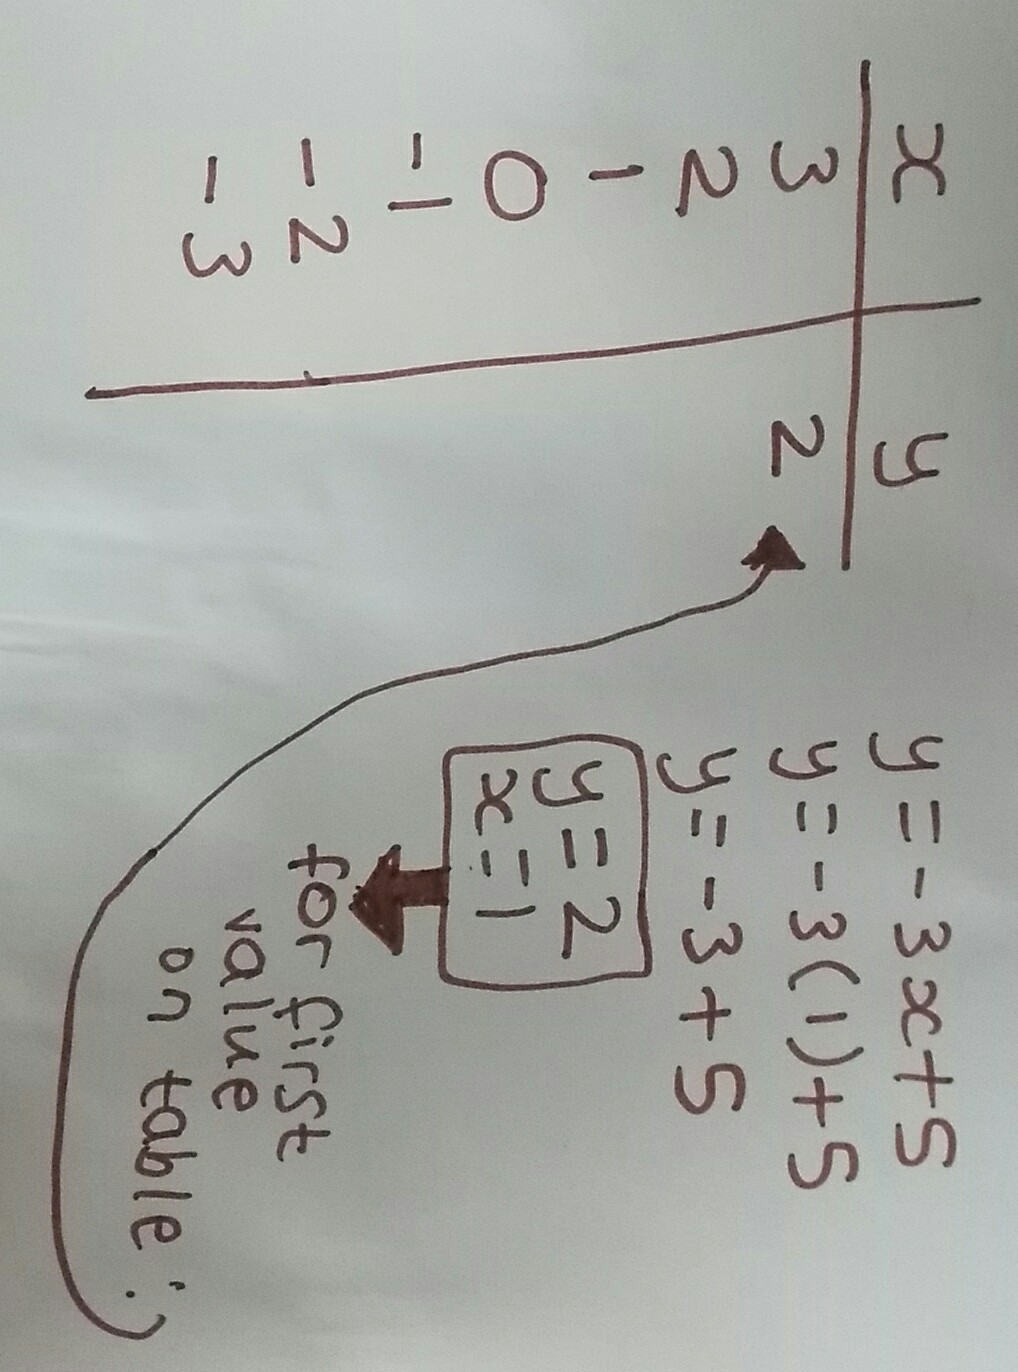 x y
3 2
2
1
0
-1
-2
-3
y = -3x + 5
y = -3(1) + 5
y = -3 + 5
y = 2
x = 1
for first
value
on table :)